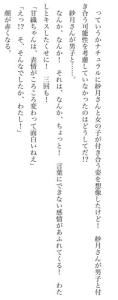 っていうかナチュラルに紗月さんと女の子が付き合う姿を想像したけど！　紗月さんが男子と付
き合う可能性を考慮していなかったのはどうしてだ!?
紗月さんが男子と……。
なんか、なんか！　それは、なんか、ちょっと！　言葉にできない感情があふれてくる！　わた
しとキスしたくせに！　三回も！
「甘織ちゃんは、表情がころころ変わって面白いねえ」
「えっ!?　そ、そんなでしたか、わたし！」
顔が赤くなる。